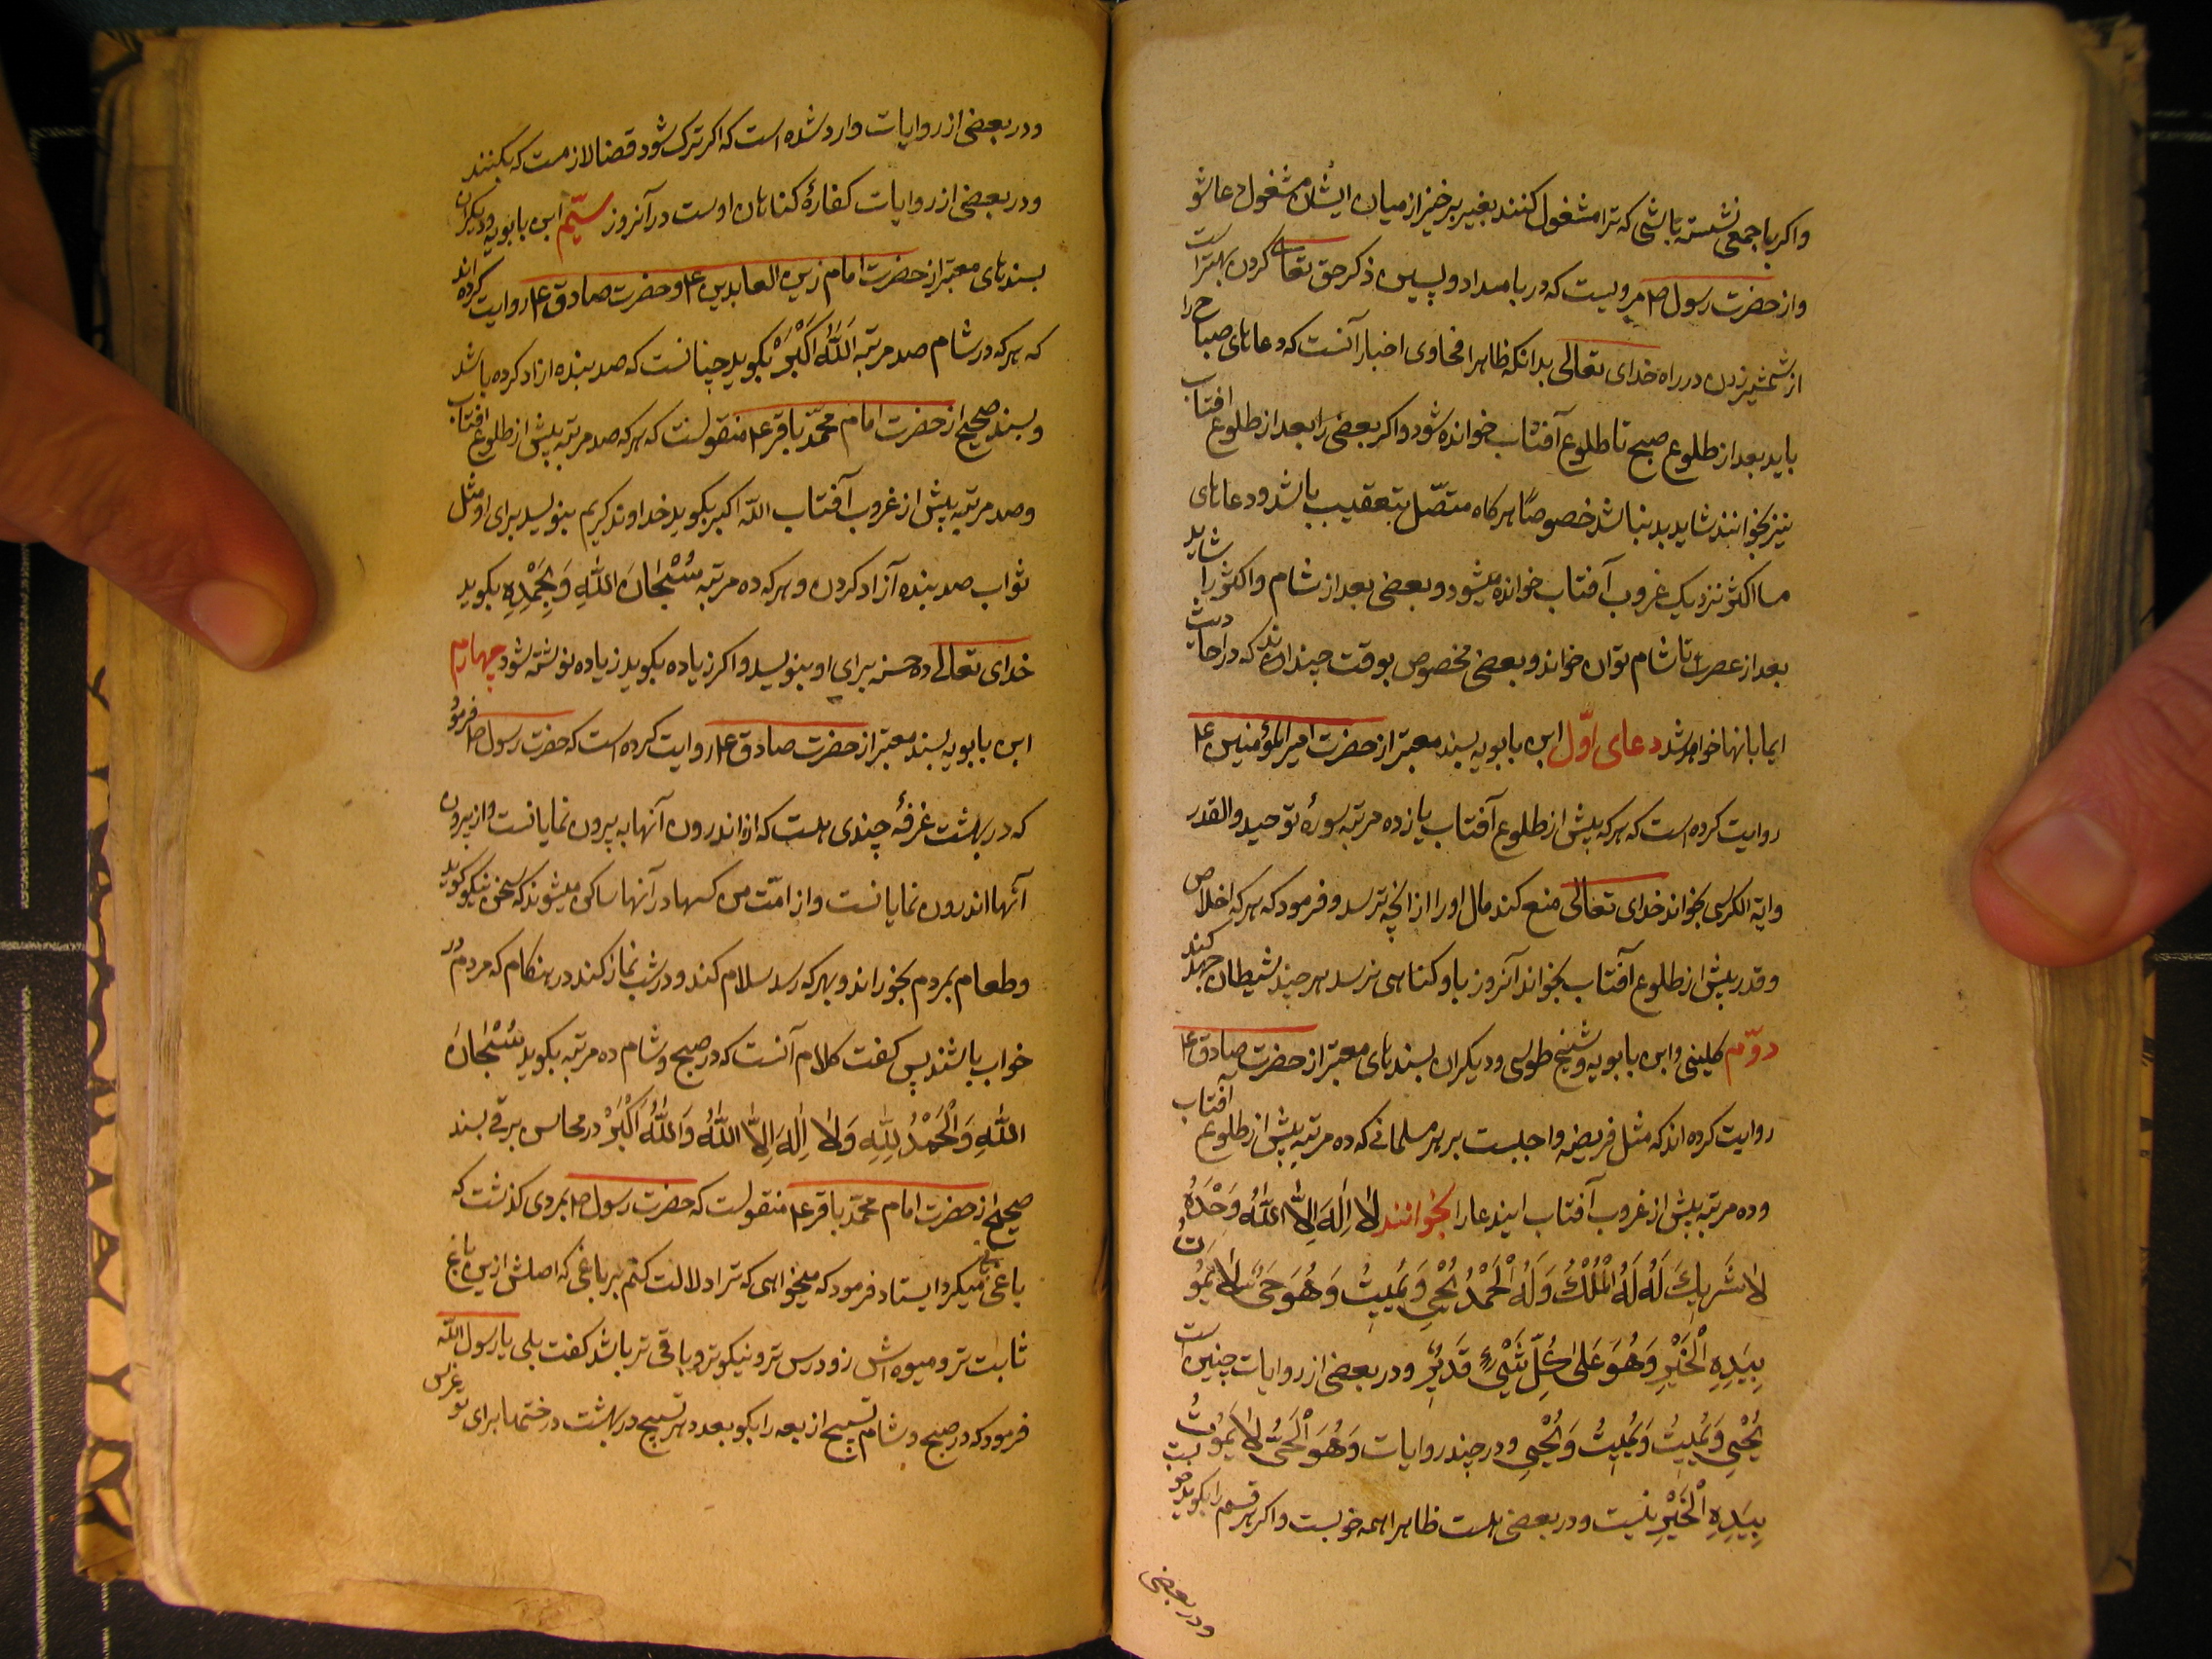 واکر باجمعی نشسته باشی که ترا مشغول کنند بغیر برخیز از میان ایشان مشغول دعا شو
واز حضرت رسول ص مرویست که در بامداد و پسین ذکر حق تعالی کردن بهتر است
از شمشیر زدن در راه خدای تعالی بدانکه ظاهرا فحاوی اخبار آنست که دعاهای صباح را
باید بعد از طلوع صبح تا طلوع آفتاب خوانده شود واکر بعضی را بعد از طلوع افتاب
نیز بخوانند شاید بد نباشد خصوصًا هرکاه متصّل بتعقیب باشد ودعاهای
مسا اکثر نزدیک غروب آفتاب خوانده میشود و بعضی بعد از شام واکثر را شاید
بعد از عصر تا شام توان خواند و بعضی مخصوص بوقت چنداند که در احادیث
ایما بانها خواهد شد دعای اوّل ابن بابویه بسند معتبر از حضرت امیر المؤمنین ع
روایت کرده است که هرکه پیش از طلوع آفتاب یازده مرتبه سورهٔ توحید والقدر
وایة الکرسی بخواند خدای تعالی منع کند مال او را از انچه ترسد و فرمود که هر که اخلاص
وقدر پیش از طلوع آفتاب بخواند آنروز باو کناهی نرسد هر چند شیطان جهد کند
دوّم کلینی وابن بابویه وشیخ طوسی ودیکران بسندهای معتبر از حضرت صادق ع
روایت کرده اند که مثل فریضه واجبست بر هر مسلمانی که ده مرتبه پیش از طلوع آفتاب
وده مرتبه پیش از غروب آفتاب ایندعا را بخوانند لَا اِلٰهَ اِلَّا اللّٰهُ وَحْدَهُ
لَا شَرِیكَ لَهُ لَهُ الْمُلْكُ وَلَهُ الْحَمْدُ یُحْیِی وَیُمِیتُ وَهُوَ حَیٌّ لَا یَمُوتُ
بِیَدِهِ الْخَیْرِ وَهُوَ عَلٰی کُلِّ شَیْءٍ قَدِیرٌ ودر بعضی از روایات چنین است
یُحْیِی وَیُمِیتُ وَیُمِیتُ وَیُحْیِی ودر چند روایات وَهُوَ الْحَیُّ لَا یَمُوتُ
بِیَدِهِ الْخَیْرِ نیست ودر بعضی هست ظاهرا همه خوبست واکر هر قسم را بکوید خوبست
ودر بعضی
ودر بعضی از روایات وارد شده است که اکر ترک شود قضا لازمست که بکنند
ودر بعضی از روایات کفارهٔ کناهان اوست در آنروز سیّم ابن بابویه ودیکران
بسندهای معتبر از حضرت امام زین العابدین ع وحضرت صادق ع روایت کرده اند
که هرکه در شام صد مرتبه اَللّٰهُ اَکْبَرْ بکوید چنانست که صد بنده ازاد کرده باشد
وبسند صحیح از حضرت امام محمّد باقر ع منقولست که هر که صد مرتبه پیش از طلوع افتاب
وصد مرتبه پیش از غروب آفتاب اللّه اکبر بکوید خداوند کریم بنویسد برای او مثل
ثواب صد بنده آزاد کردن وهر که ده مرتبه سُبْحَانَ اللّٰهِ وَبِحَمْدِهِ بکوید
خدای تعالی ده حسنه برای او بنویسد واکر زیاده بکوید زیاده نوشته شود چهارم
ابن بابویه بسند معتبر از حضرت صادق ع روایت کرده است که حضرت رسول ص فرمود
که در بهشت غرفهٔ چندی هست که از اندرون آنها بیرون نمایانست واز بیرون
آنها اندرون نمایانست واز امّت من کسها در آنها ساکن میشوند که سخن نیکو کوید
وطعام بمردم بخوراند وبهر که رسد سلام کند ودر شب نماز کند در هنکام که مردم در
خواب باشند پس کفت کلام آنست که در صبح و شام ده مرتبه بکوید سُبْحَانَ
اللّٰهِ وَالْحَمْدُ لِلّٰهِ وَلَا اِلٰهَ اِلَّا اللّٰهُ وَاللّٰهُ اَکْبَرْ در محاسن برقی بسند
صحیح از حضرت امام محمّد باقر ع منقولست که حضرت رسول ص بمردی کذشت که
باغی میکرد ایستاد فرمود که میخواهی که ترا دلالت کنم بر باغی که اصلش ازین باغ
ثابت تر ومیوه اش زودرس تر ونیکوتر وباقی تر باشد کفت بلی یا رسول اللّه
فرمود که در صبح وشام تسبیح اربعه را بکو بعدد هر تسبیح در بهشت درختها برای تو غرس